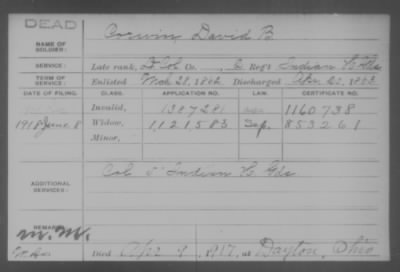 DEAD
NAME OF SOLDIER: Corwin David B
SERVICE: Late rank, Lt Col Co. , 2 Reg't Indian H. Gds
TERM OF SERVICE: Enlisted 1862 Discharged 1863
DATE OF FILING. CLASS. APPLICATION NO. LAW. CERTIFICATE NO.
Invalid, 1387281 1160738
1918 June 8 Widow, 1121583 853261
Minor,
ADDITIONAL SERVICES: Col Indian H. Gds
REMARKS: M.M.
Died Apr 9, 1917, at Dayton, Ohio